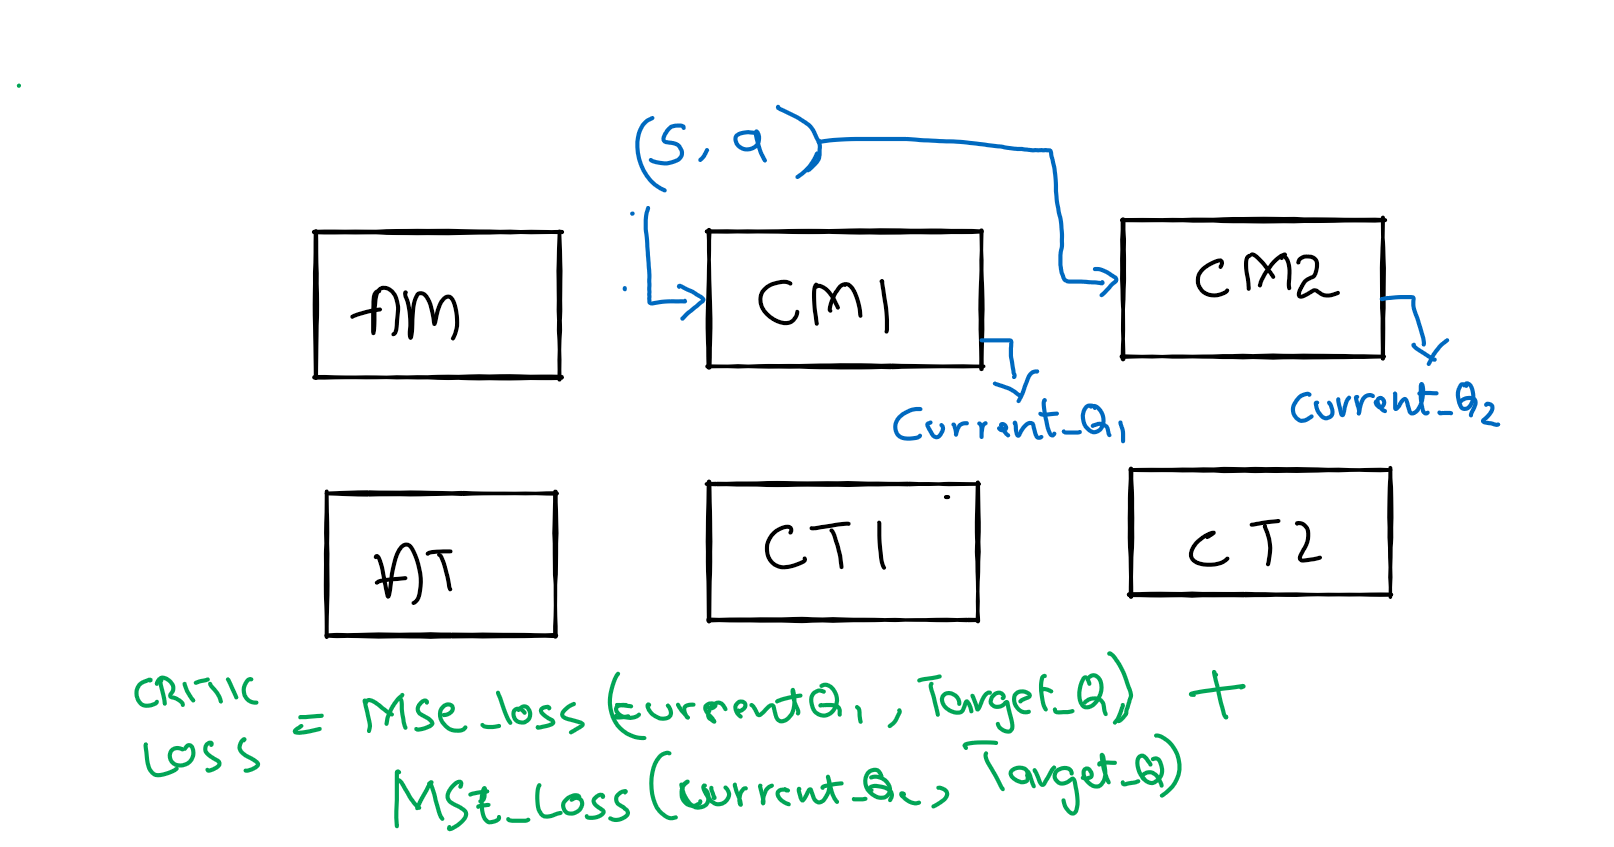 (S, a)
AM
CM1
CM2
Current_Q1
Current_Q2
AT
CT1
CT2
CRITIC
LOSS
= MSE_loss (currentQ1, Target_Q) +
MSE_Loss (current_Q2, Target_Q)